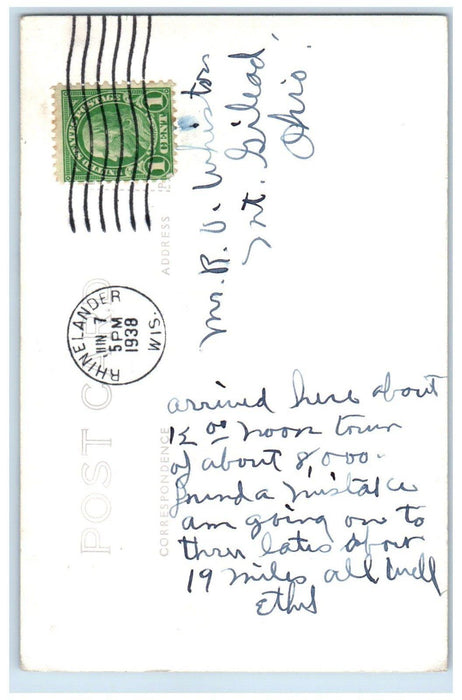 POST CARD
ADDRESS
CORRESPONDENCE
UNITED STATES POSTAGE
1 CENT 1
RHINELANDER
JUN 7
5 PM
1938
WIS.
Mr. R. V. Whiston
Mt. Gilead,
Ohio.
arrived here about
12 00 noon town
of about 8,000.
found a mistake
am going on to
three lakes about
19 miles all well